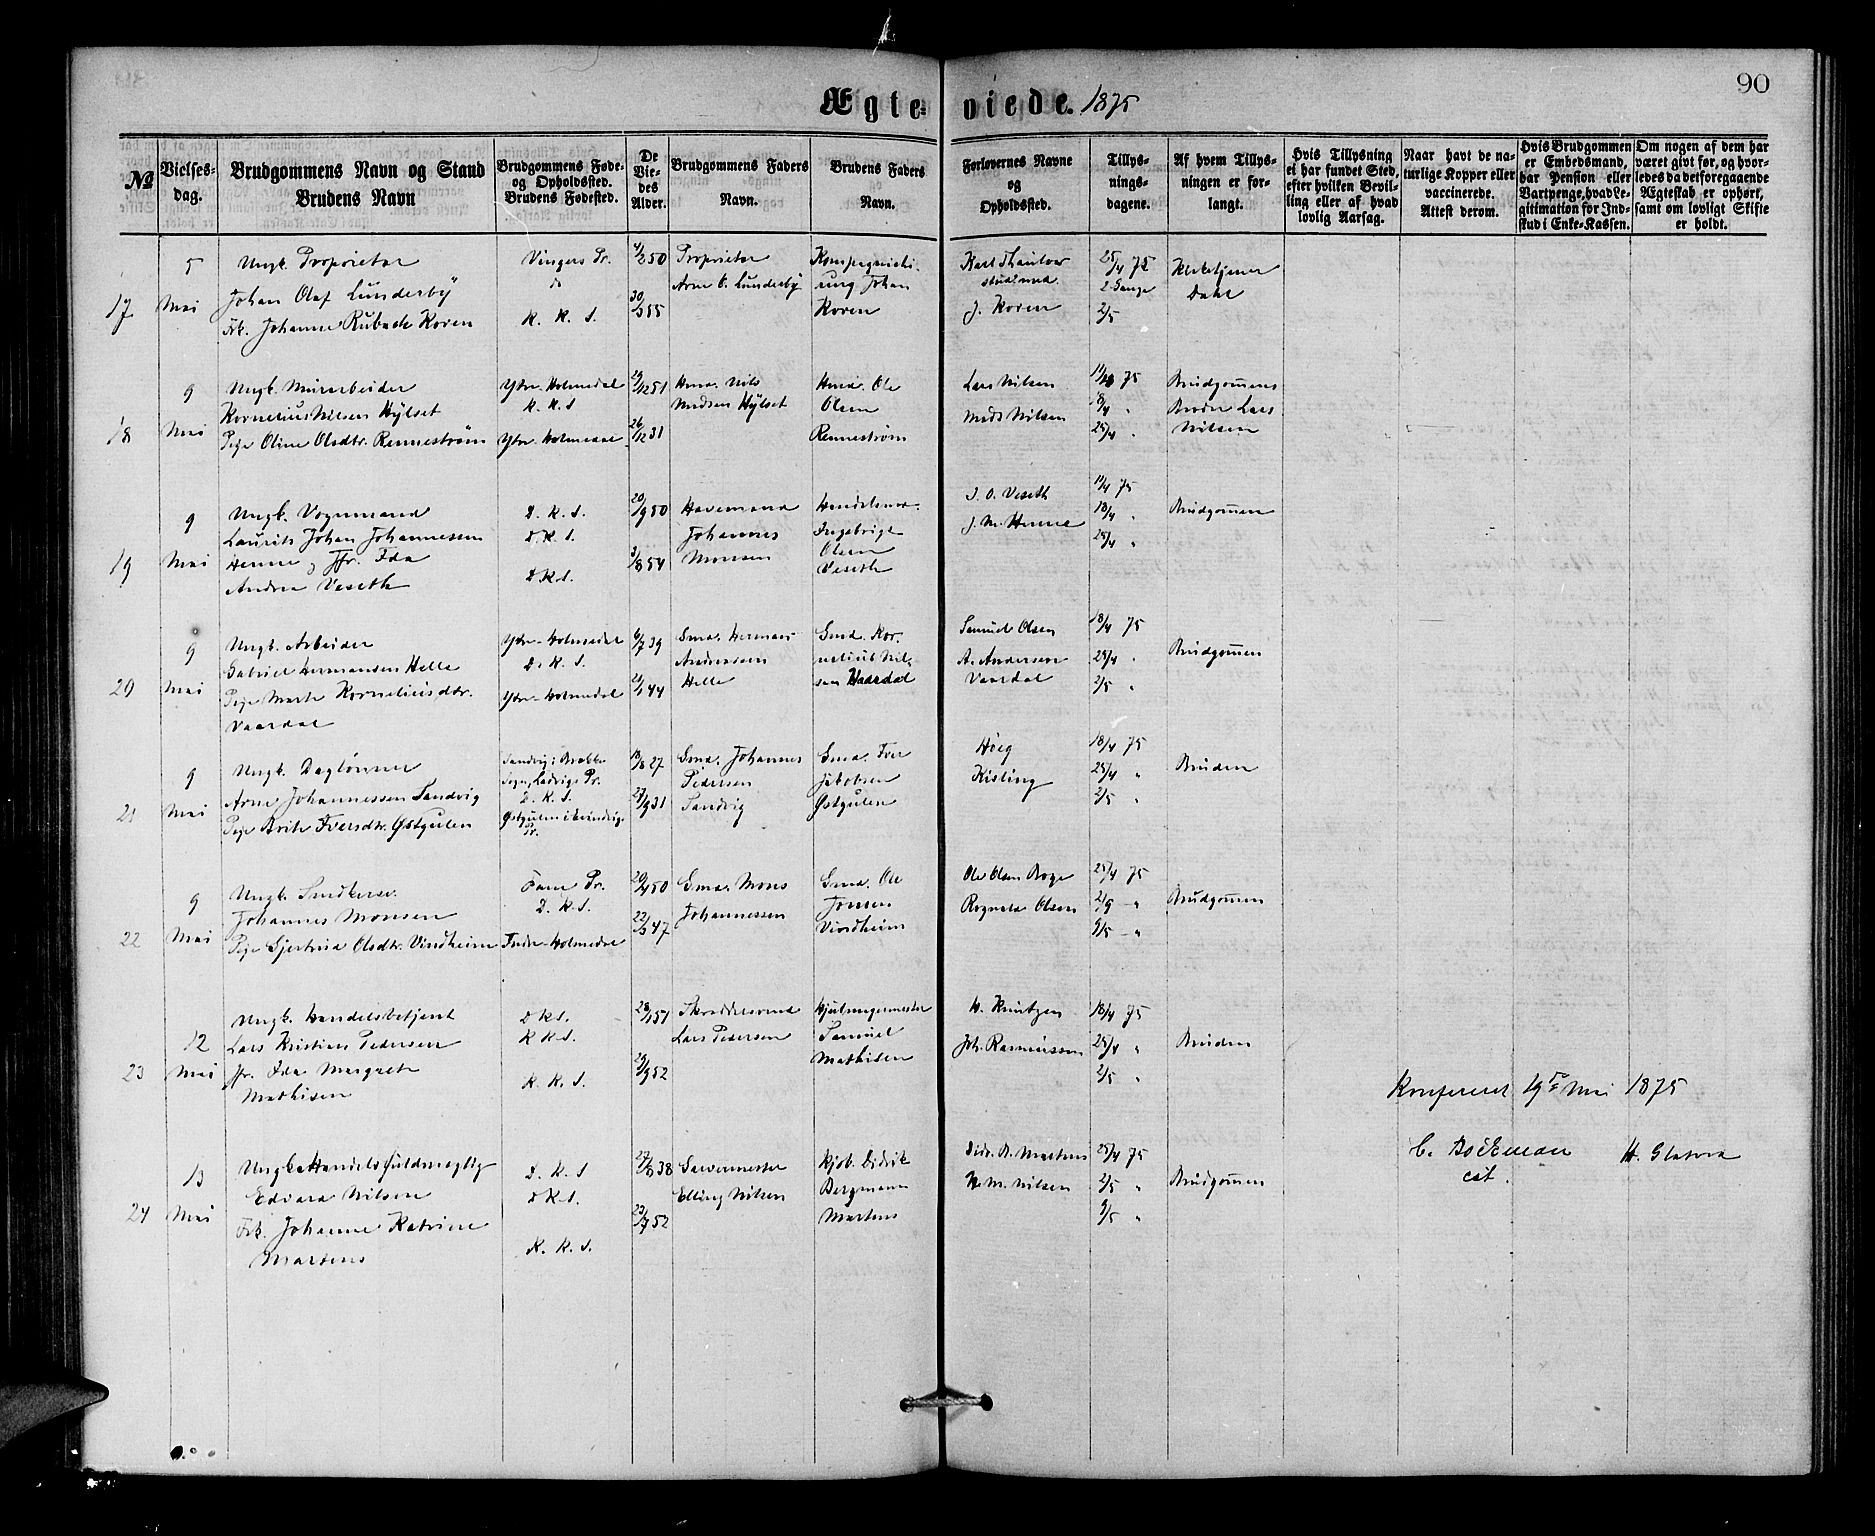 90
Ægteviede. 1875
No
Vielses-
dag.
Brudgommens Navn og Stand
Brudens Navn
Brudgommens Føde-
og Opholdssted.
Brudens Fødested.
De
Vie-
des
Alder.
Brudgommens Faders
Navn.
Brudens Faders
Navn.
Forlovernes Navne
og
Opholdssted.
Tillys-
nings-
dagene.
Af hvem Tillys-
ningen er for-
langt.
Hvis Tillysning
ei har fundet Sted,
efter hvilken Bevil-
ling eller af hvad
lovlig Aarsag.
Naar havt de na-
turlige Kopper eller
vaccinerede.
Attest derom.
Hvis Brudgommen
er Embedsmand,
har Pension eller
Vartpenge, hvad Le-
gitimation for Ind-
skud i Enke-Kassen.
Om nogen af dem har
været givt før, og hvor-
ledes da det foregaaende
Ægteskab er ophørt,
samt om lovligt Skifte
er holdt.
17
5
Mai
Ungk. Proprietær
Johan Olaf Lunderbÿ
Frk. Johanne Rubach Koren
Vingers Pr.
K. K. S.
4/2 50
30/3 55
Proprietær
Arne O. Lunderbÿ
Johan
Koren
stud. med.
J. Koren
25/4 75
2 Gange
2/5
Kirketjener
Dahl
18
9
Mai
Ungk. Murarbeider
Kornelius Nilsen Hÿlset
Pige Oline Olsdtr. Rennestrøm
Ytre-Holmedal
K. K. S
Ytre-Holmedal
29/12 51
26/12 31
Gmd. Nils
Madsen Hÿlset
Gmd. Ole
Olsen
Rennestrøm
Lars Nilsen
Mads Nilsen
11/4 75
18/4 "
25/4 "
Brudgom̄ens
Broder Lars
Nilsen
19
9
Mai
Ungk. Vognmand
Laurits Johan Johannessen
Henne og Jfr. Ida
Andrea Veseth
D. K. S.
D. K. S.
D. K. S.
20/9 50
3/8 54
Havemand
Johannes
Monsen
Handelsmd.
Ingebrigt
Olsen
Veseth
I. O. Veseth
J. M. Henne
11/4 75
18/4 "
25/4 "
Brudgom̄en
20
9
Mai
Ungk. Arbeider
Gabriel Hermansen Helle
Pige Marte Korneliusdtr.
Vaardal
Ytre-Holmedal
D. K. S.
Ytre-Holmedal
6/7 39
21/1 44
Gmd. Herman
Andersen
Helle
Gmd. Kor-
nelius Nil-
sen Vaardal
Samuel Olsen
A. Andersen
Vaardal
18/4 75
25/4 "
2/5 "
Brudgom̄en
21
9
Mai
Ungk. Daglønner
Arne Johannessen Sandvig
Pige Brite Iversdtr. Østgulen
Sandvig i Brekke
Sogn, Ladvigs Pr.
D. K. S.
Østgulen i Evindvigs
Pr.
18/8 27
27/9 31
Gmd. Johannes
Pedersen
Sandvig
Gmd. Iver
Jakobsen
Østgulen
Høeg
Kisling
18/4 75
25/4 "
2/5 "
Bruden
22
9
Mai
Ungk. Smedkersv.
Johannes Monsen
Pige Gjertrud Olsdtr. Vindheim
Fane Pr.
D. K. S.
Indre-Holmedal
20/4 50
22/3 47
Gmd. Mons
Johannessen
Gmd. Ole
Jonsen
Vindheim
Ole Olsen Boge
Rognald Olsen
25/4 75
2/5 - "
9/5 - "
Brudgom̄en
23
12
Mai
Ungk. Handelsbetjent
Lars Kristian Pedersen
Jfr. Ida Margrete
Mathisen
D. K. S.
K. K. S.
K. K. S.
28/1 51
29/9 52
Skræddersvend
Lars Pedersen
Hjulmagermester
Samuel
Mathisen
H. Knutzen
Joh. Rasmussen
18/4 75
25/4 "
2/5 "
Bruden
Konfereret 19de Mai 1875
C. Bøckman
cst.
H. Glatved
24
13
Mai
Ungk. Handelsfuldmægtig
Edvard Nilsen
Frk. Johanne Katrine
Martens
D. K. S
D. K. S.
K. K. S.
27/8 38
23/7 52
Garvermester
Elling Nilsen
Kjøb. Didrik
Bergmann
Martens
Didr. B. Martens
N. M. Nilsen
25/4 75
2/5 "
9/5 "
Brudgom̄en